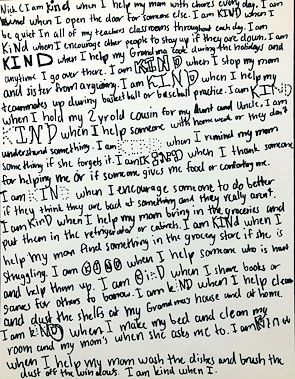 Nick C I am kind when I help my mom with chores every day. I am
kind when I open the door for someone else. I am KIND when I
be quiet In all of my teachers classrooms throughout each day. I am
KiNd when I encourage other people to stay up if they are down. I am
KIND when I help my Grandma cook during the holidays and
anytime I go over there. I am KIND when I stop my mom
and sister from arguing. I am KIND when I help my
teammates up during basketball or baseball practice. I am KIND
when I hold my 2 yr old cousin for my Aunt and Uncle. I am
KIND when I help someone with home work or they don't
understand something. I am when I remind my mom
something if she forgets it. I am KIND when I thank someone
for helping me or if someone gives me food or comforting me.
I am KIND when I encourage someone to do better
if they think they are bad at something and they really aren't.
I am KinD when I help my mom bring in the groceries and
put them in the refrigerator or cabinets. I am KIND when I
help my mom find something in the grocery store if she is
struggling. I am KIND when I help someone who is hurt
and help them up. I am KiND when I share books or
games for others to borrow. I am kIND when I help clean
and dust the shelfs at my Grandma's house and at home.
I am kIND when I make my bed and clean my
room and my mom's when she asks me to. I am Kind
when I help my mom wash the dishes and brush the
dust off the windows. I am kind when I.